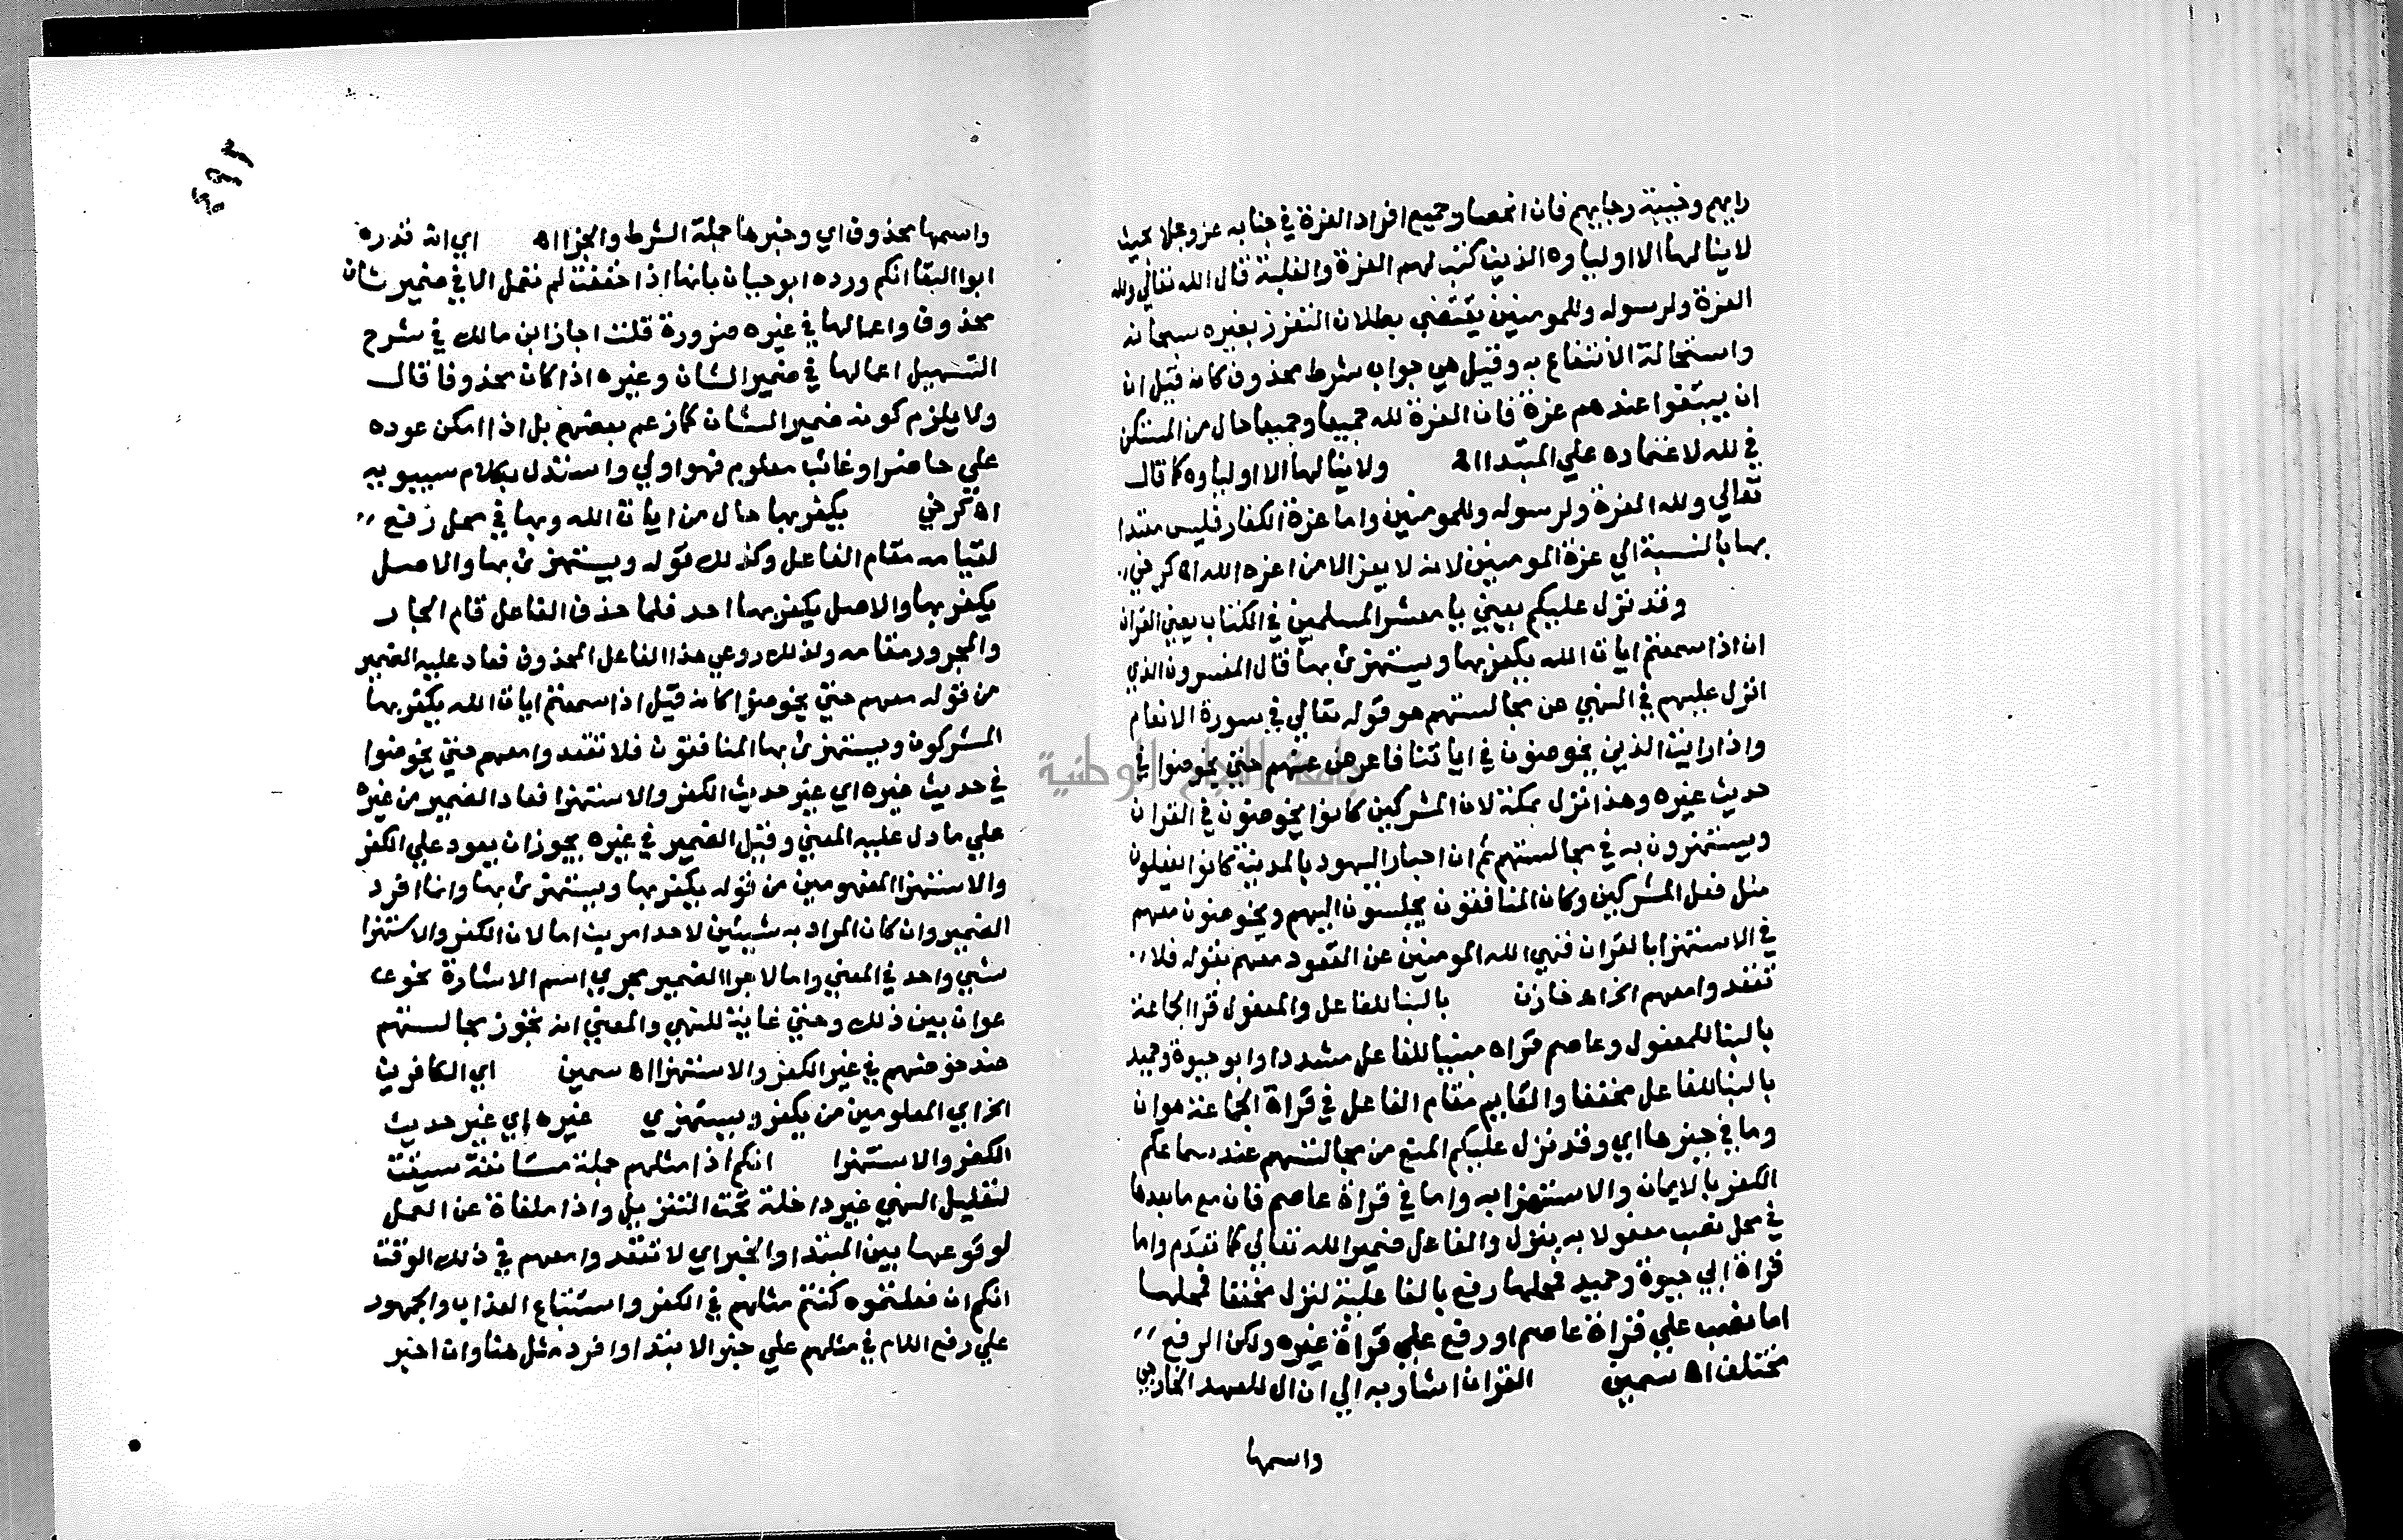 رايهم وخيبة رجايهم فان انحصار جميع افراد العزة في جنابه عز وجل بحيث
لا ينالها الا اولياوه الذين كتب لهم العزة والغلبة قال الله تعالي ولله
العزة ولرسوله وللمومنين يقتضي بطلان التعزز بغيره سبحانه
واستحالة الانتفاع به وقيل هي جواب شرط محذوف كانه قيل ان
ان يبتغوا عندهم عزة فان العزة لله جميعا وجميعا حال من المستكن
في لله لاعتماده علي المبتدا اه ولا ينالها الا اولياوه كما قال
تعالي ولله العزة ولرسوله وللمومنين واما عزة الكفار فليس معتدا
بها بالنسبة الي عزة المومنين لانه لا يعز الا من اعزه الله اه كرخي
وقد نزل عليكم يعني يا معشر المسلمين في الكتاب يعني القران
ان اذا سمعتم ايات الله يكفر بها ويستهزئ بها قال المفسرون الذي
انزل عليهم في النهي عن مجالستهم هو قوله تعالي في سورة الانعام
واذا رايت الذين يخوضون في اياتنا فاعرض عنهم حتي يخوضوا في
حديث غيره وهذا نزل بمكة لان المشركين كانوا يخوضون في القران
ويستهزون به في مجالستهم ثم ان احبار اليهود بالمدينة كانوا يفعلون
مثل فعل المشركين وكان المنافقون يجلسون اليهم ويخوضون معهم
في الاستهزا بالقران فنهي الله المومنين عن القعود معهم بقوله فلا
تقعدوا معهم الخ اه خازن بالبنا للفاعل والمفعول قرا الجماعة
بالبنا للمفعول وعاصم قراه مبنيا للفاعل مشددا وابو حيوة وحميد
بالبنا للفاعل مخففا والقايم مقام الفاعل في قراة الجماعة هو ان
وما في حيزها اي وقد نزل عليكم المنع من مجالستهم عند سماعكم
الكفر بالايمان والاستهزا به واما في قراة عاصم فان مع ما بعدها
في محل نصب مفعولا به بنزل والفاعل ضمير الله تعالي كما تقدم واما
قراة ابي حيوة وحميد فمحلها رفع بالفاعلية لنزل مخففا فمحلها
اما نصب علي قراة عاصم او رفع علي قراة غيره ولكن الرفع
مختلف اه سمين القران اشار به الي ان ال للعهد الخارجي
واسمها
واسمها محذوف اي وخبرها جملة الشرط والجزا اه اي انه قدره
ابو البقا انكم ورده ابو حيان بانها اذا خففت لم تعمل الا في ضمير شان
محذوف واعمالها في غيره ضرورة قلت اجاز ابن مالك في شرح
التسهيل اعمالها في ضمير الشان وغيره اذا كان محذوفا قال
ولا يلزم كونه ضمير الشان كما زعم بعضهم بل اذا امكن عوده
علي حاضر او غائب معلوم فهو اولي واستدل بكلام سيبويه
اه كرخي يكفر بها حال من ايات الله وبها في محل رفع
لقيامه مقام الفاعل وكذلك قوله ويستهزئ بها والاصل
يكفر بها والاصل يكفر بها احد فلما حذف الفاعل قام الجار
والمجرور مقامه ولذلك روعي هذا الفاعل المحذوف فعاد عليه الضمير
من قوله معهم حتي يخوضوا كانه قيل اذا سمعتم ايات الله يكفر بها
المشركون ويستهزئ بها المنافقون فلا تقعدوا معهم حتي يخوضوا
في حديث غيره اي غير حديث الكفر والاستهزا فعاد الضمير من غيره
علي ما دل عليه المعني وقيل الضمير في غيره يجوز ان يعود علي الكفر
والاستهزا المفهومين من قوله يكفر بها ويستهزئ بها وانما افرد
الضمير وان كان المراد به شيئين لاحد امرين اما لان الكفر والاستهزا
شي واحد في المعني واما لاجرا الضمير مجري اسم الاشارة نحو
عوان بين ذلك وحتي غاية للنهي والمعني انه تجوز مجالستهم
عند خوضهم في غير الكفر والاستهزا اه سمين اي الكافرين
الخ اي المعلومين من يكفر ويستهزي غيره اي غير حديث
الكفر والاستهزا انكم اذا مثلهم جملة مستانفة سيقت
لتعليل النهي غير داخلة تحت التنزيل واذا ملغاة عن العمل
لوقوعها بين المبتدا والخبر اي لا تقعدوا معهم في ذلك الوقت
انكم ان فعلتموه كنتم مثلهم في الكفر واستتباع العذاب والجمهور
علي رفع اللام في مثلهم علي خبر الابتدا وافرد مثل هنا وان اخبر